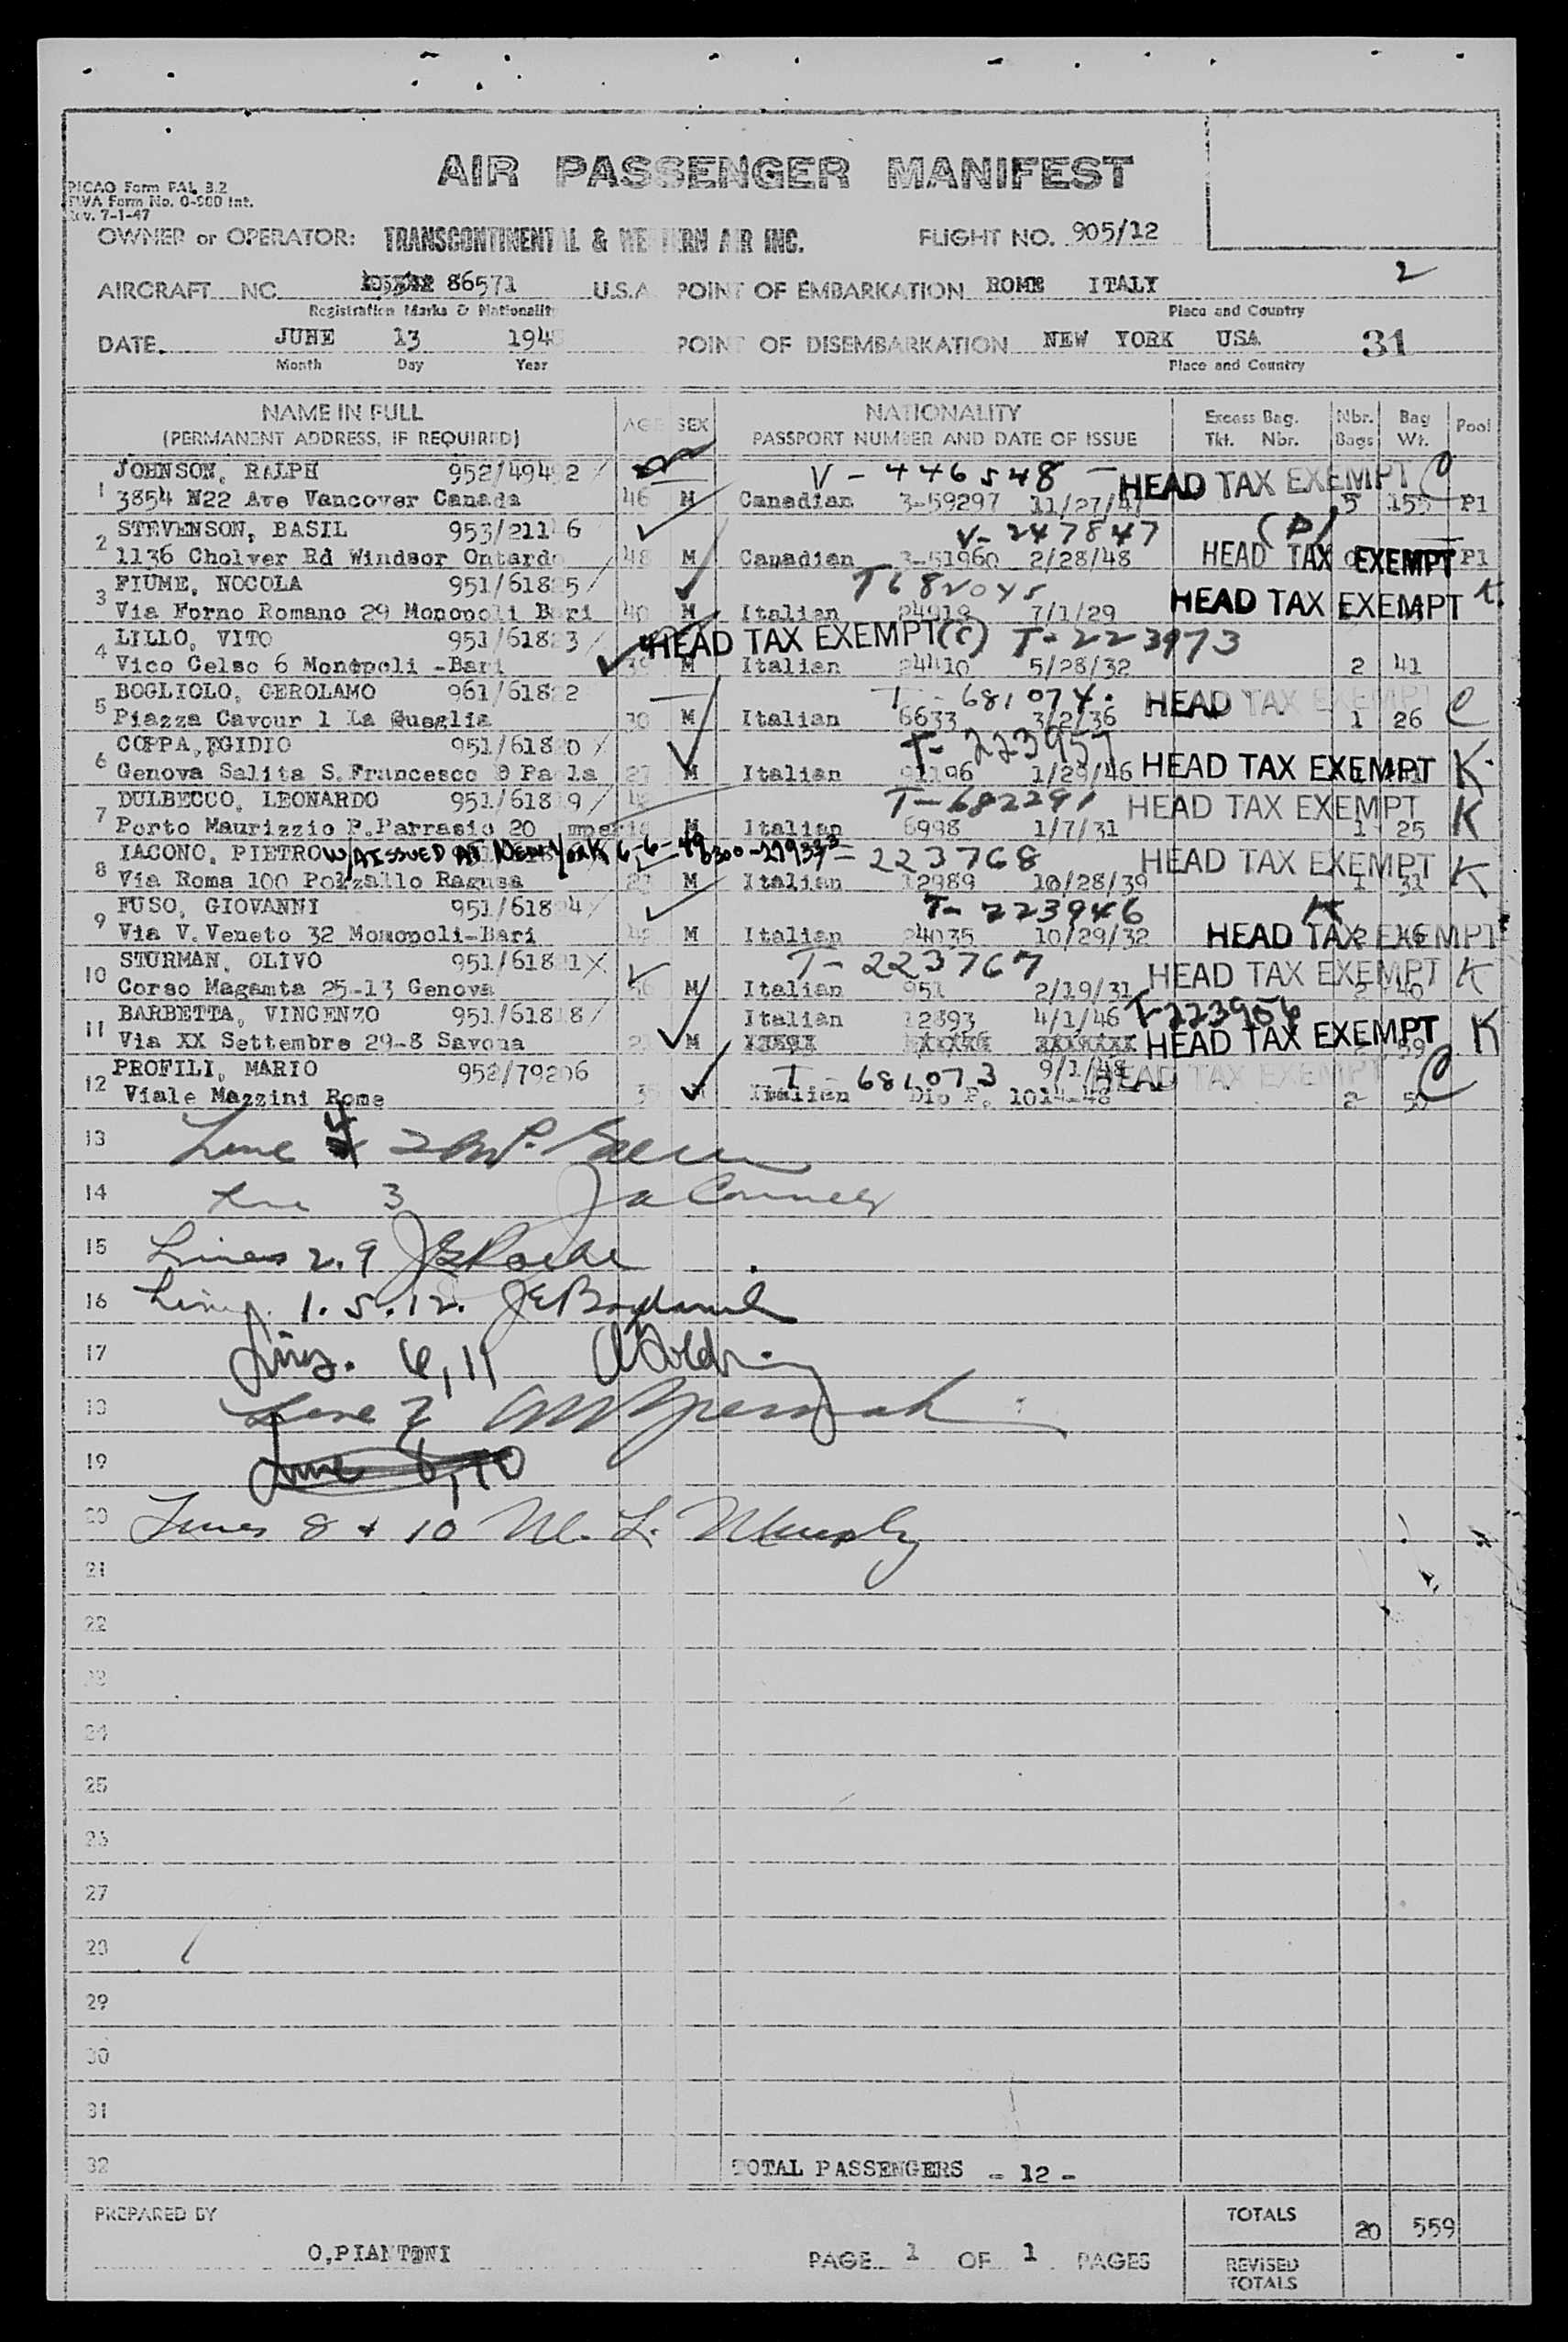 AIR PASSENGER MANIFEST
PICAO Form FAL 3.2
TWA Form No. O-900 Int.
Rev. 7-1-47
OWNER or OPERATOR: TRANSCONTINENTAL & WESTERN AIR INC. FLIGHT NO. 905/12
2
AIRCRAFT NC 86571 U.S.A. POINT OF EMBARKATION ROME ITALY
Registration Marks & Nationality Place and Country
DATE. JUNE 13 194 POINT OF DISEMBARKATION NEW YORK USA 31
Month Day Year Place and Country
NAME IN FULL AGE SEX NATIONALITY Excess Bag. Nbr. Bag Pool
(PERMANENT ADDRESS, IF REQUIRED) PASSPORT NUMBER AND DATE OF ISSUE Tkt. Nbr. Bags Wt.
JOHNSON, RALPH 952/494 2 V - 446548 - HEAD TAX EXEMPT C
1 3854 W22 Ave Vancover Canada 46 M Canadian 3-59297 11/27/47 5 155 P1
STEVENSON, BASIL 953/211 6 V- 247847 (P)
2 1136 Cholver Rd Windsor Ontardo 48 M Canadian 3-51960 2/28/48 HEAD TAX EXEMPT P1
FIUME, NOCOLA 951/618 5 T682045
3 Via Forno Romano 29 Monopoli Bari 40 M Italian 24919 7/1/29 HEAD TAX EXEMPT K.
LILLO, VITO 951/618 3 HEAD TAX EXEMPT (C) T-223973
4 Vico Celso 6 Monopoli -Bari M Italian 24410 5/28/32 2 41
BOGLIOLO, GEROLAMO 961/618 2 T - 681074. HEAD TAX EXEMPT C
5 Piazza Cavour 1 La Queglia 30 M Italian 6633 3/2/36 1 26
COPPA, EGIDIO 951/618 0 T- 223957
6 Genova Salita S. Francesco D Paola 27 M Italian 91196 1/29/46 HEAD TAX EXEMPT K.
DULBECCO, LEONARDO 951/618 9 T-682291 HEAD TAX EXEMPT K
7 Porto Maurizzio P. Parrasio 20 Imperia M Italian 6998 1/7/31 1 25
IACONO, PIETRO ISSUED AT NEW YORK 6-6-49 T-223768 HEAD TAX EXEMPT K
8 Via Roma 100 Pozzallo Ragusa M Italian 12989 10/28/39 1 31
FUSO, GIOVANNI 951/618 4 T- 223946 K
9 Via V. Veneto 32 Momopoli-Bari M Italian 24035 10/29/32 HEAD TAX EXEMPT
STURMAN, OLIVO 951/618 1 T- 223767 HEAD TAX EXEMPT K
10 Corso Magamta 25-13 Genova M Italian 951 2/19/31 2 40
BARBETTA, VINCENZO 951/618 8 Italian 12393 4/1/46 T-223956
11 Via XX Settembre 29-8 Savona M HEAD TAX EXEMPT K 59
PROFILI, MARIO 952/79206 T - 681073 9/1/48 HEAD TAX EXEMPT C
12 Viale Mazzini Rome 35 Italian Dip P. 1014-48 2 50
13 Line 4
14 Line 3 Ja Connelly
15 Lines 2.9 JE Roche
16 Lines 1.5.12.
17 Lines. 6,11
18 Line 7
19 Line 6,10
20 Lines 8 + 10 M. L. Murphy
21
22
23
24
25
26
27
28
29
30
31
32 TOTAL PASSENGERS - 12 -
PREPARED BY TOTALS 20 559
O,PIANTONI PAGE 1 OF 1 PAGES REVISED
TOTALS